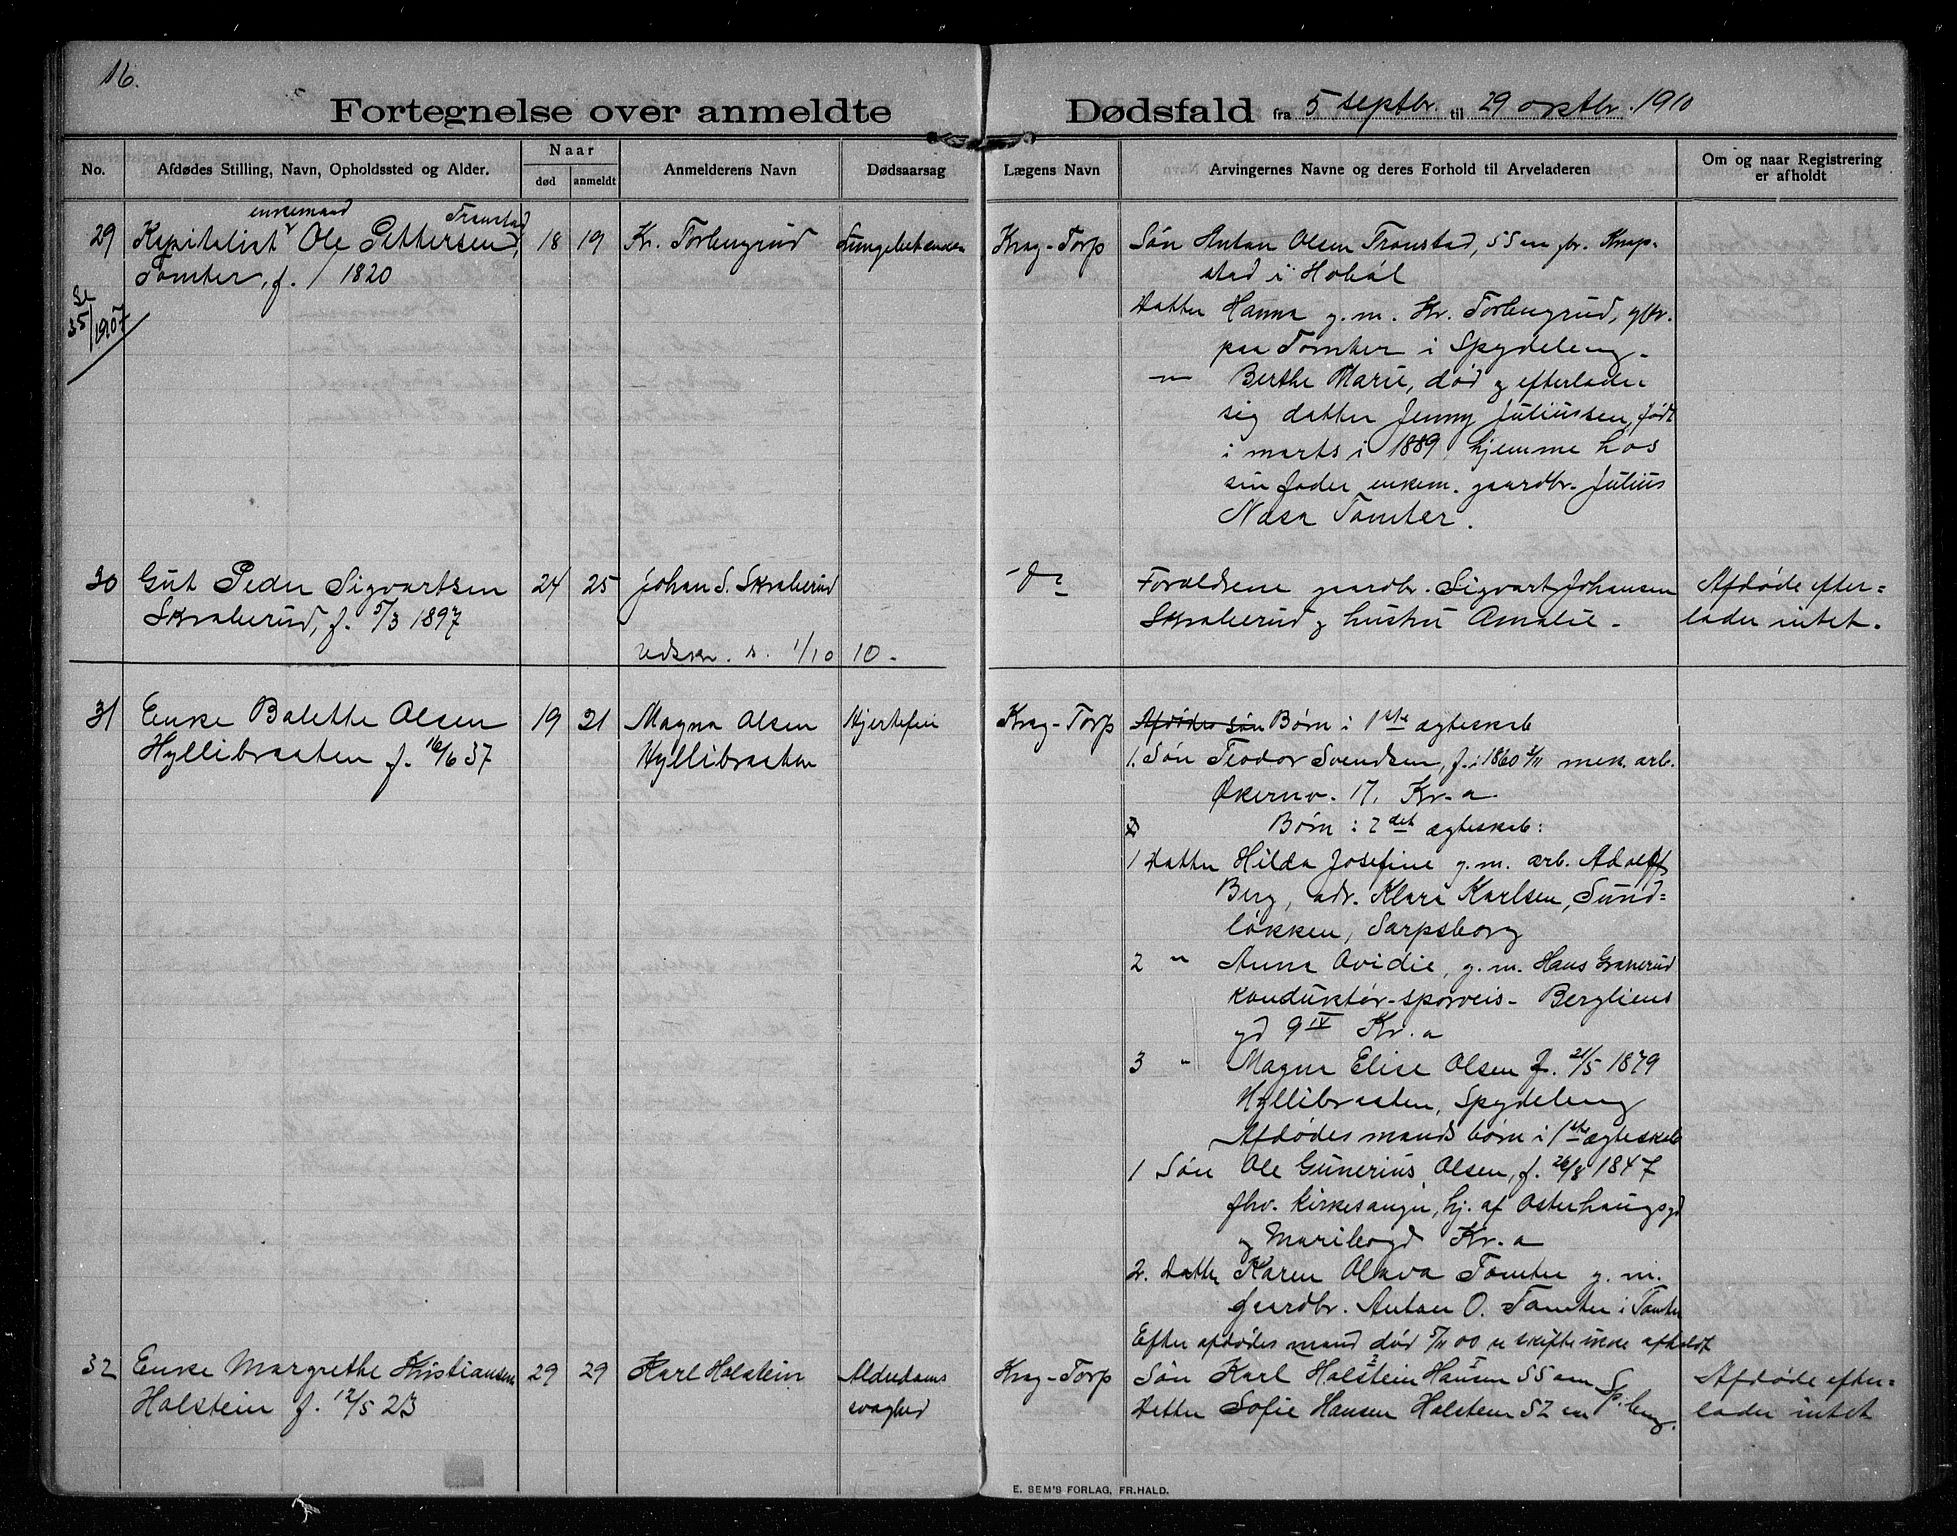 16.
Fortegnelse over anmeldte Dødsfald fra 5 septbr. til 29 oktbr. 1910
No. Afdødes Stilling, Navn, Opholdssted og Alder. Naar død anmeldt Anmelderens Navn Dødsaarsag Lægens Navn Arvingernes Navne og deres Forhold til Arveladeren Om og naar Registrering er afholdt
enkemand Tronstad
29 Kapitalist Ole Pettersen, 18 19 Kr. Torbengrud Lungebetændelse
Tomter, f. / 1820
Se
35/1907
Krag-Torp
Søn Anton Olsen Tronstad, 55 aar, gbr. Knap-
stad i Hobøl
Datter Hanna g.m. Kr. Torbengrud, gbr.
paa Tomter i Spydeberg.
" Berthe Marie, død og efterlader
sig datter Jenny Juliussen, født
i marts i 1889, hjemme hos
sin fader enkem. gaardbr. Julius
Næss Tomter.
30 Gut Peder Sigvartsen 24 25 Johan S. Skraberud
Skraberud, f. 5/3 1897
Udskr. s. 1/10 10.
do
Forældrene gaardbr. Sigvart Johansen
Skraberud og hustru Amalie.
Afdøde efter=
lader intet.
31 Enke Balette Olsen 19 21 Magna Olsen Hjertefeil
Hyllibraaten f. 16/6 37 Hyllibraaten
Krag-Torp
Afdødes søn Børn i 1ste ægteskab
1. Søn Teodor Svendsen, f. i 1860 mek. arb.
Økernv. 17. Kr.a
Børn i 2det ægteskab:
1 Datter Hilda Josefine g.m. arb. Adolf
Berg, adr. Klara Karlsen, Sund=
løkken, Sarpsborg
2 " Anna Ovidie, g.m. Hans Granerud
konduktør-sporveis- Bergliens
gd 9 IV Kr.a
3 " Magna Elise Olsen f. 21/5 1879
Hyllibraaten, Spydeberg
Afdødes mands børn i 1ste ægteskab
1 Søn Ole Gunerius Olsen, f. 26/8 1847
fhv. kirkesanger, hj. af Osterhausgd
og Maribogd Kr.a
2. Datter Karen Olava Tomter g.m.
Gaardbr. Anton O. Tomter i Tomter
Efter afdødes mand død 5/11 00 er skifte ikke afholdt
32 Enke Margrethe Kristiansen 29 29 Karl Holstein Alderdoms
Holstein f. 12/5 23 svaghed
Krag-Torp
Søn Karl Holstein Hansen 55 aar
Datter Sofie Hansen Holstein 52 aar Sp.berg.
Afdøde efter-
lader intet
E. SEM'S FORLAG, FR.HALD.